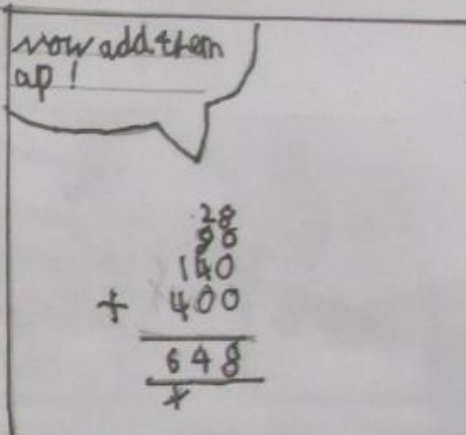 Now add them
ap !
28
80
140
+ 400
648